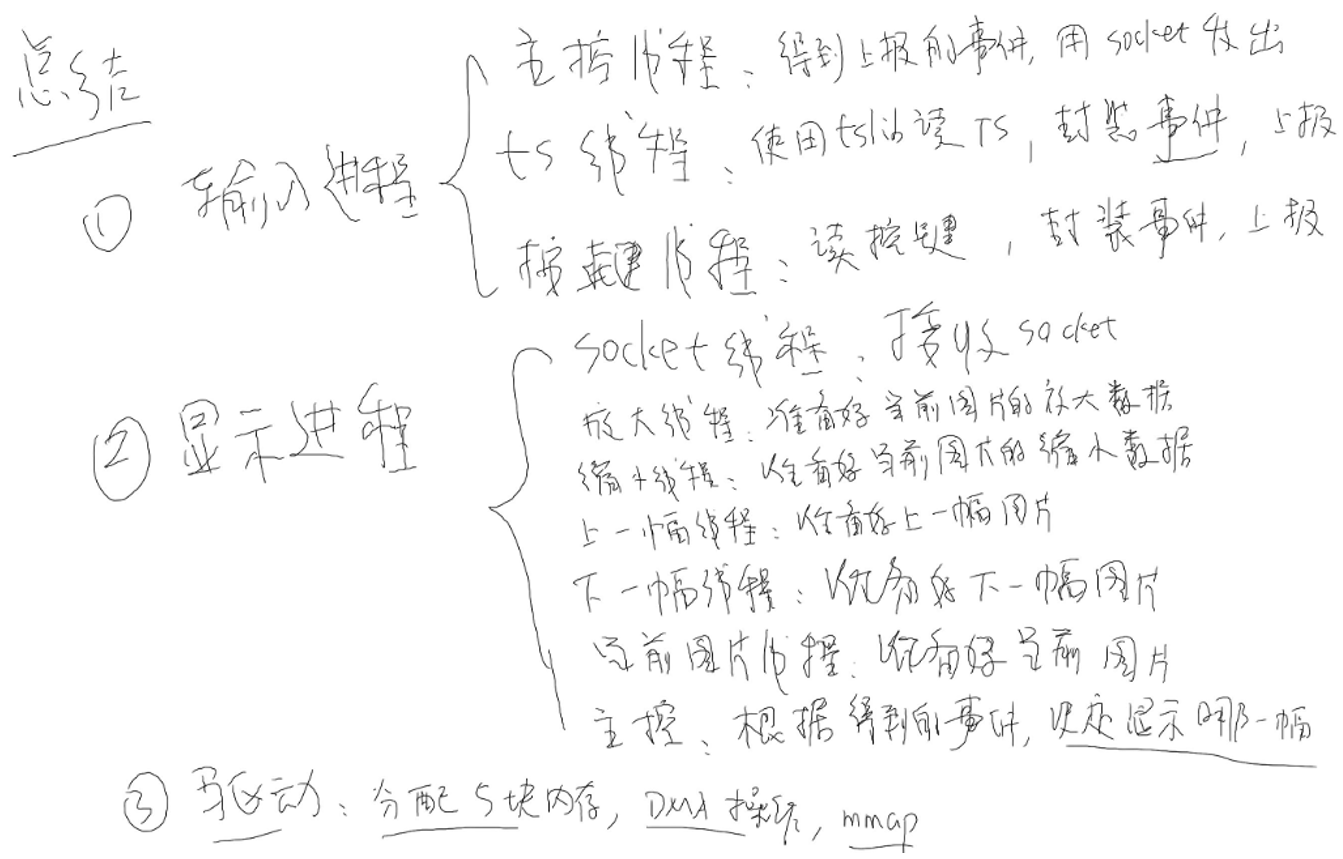 总结
① 输入进程
主控线程：得到上报的事件，用socket发出
ts线程：使用tslib读TS，封装事件，上报
按键线程：读按键，封装事件，上报
② 显示进程
socket线程：接收socket
放大线程：准备好当前图片的放大数据
缩小线程：准备好当前图片的缩小数据
上一幅线程：准备好上一幅图片
下一幅线程：准备好下一幅图片
当前图片线程：准备好当前图片
主控：根据得到的事件，决定显示哪一幅
③ 驱动：分配5块内存，DMA操作，mmap